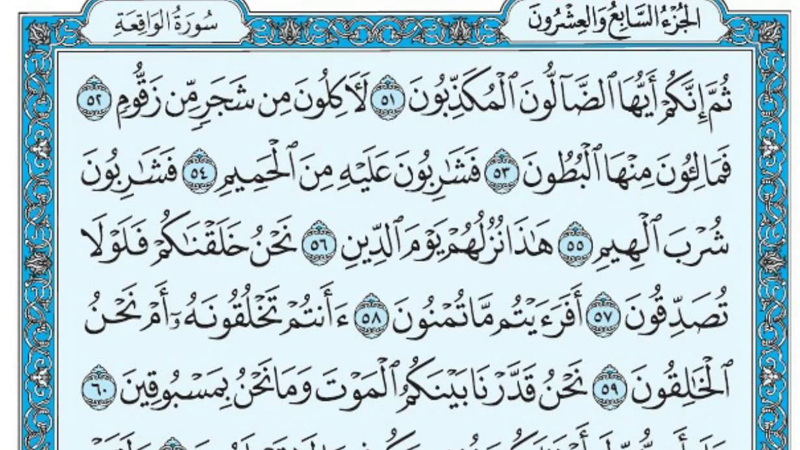 الجُزْءُ السَّابِعُ وَالعِشْرُونَ
سُورَةُ الوَاقِعَةِ
ثُمَّ إِنَّكُمْ أَيُّهَا ٱلضَّآلُّونَ ٱلْمُكَذِّبُونَ ٥١ لَءَاكِلُونَ مِن شَجَرٍ مِّن زَقُّومٍ ٥٢
فَمَالِـُٔونَ مِنْهَا ٱلْبُطُونَ ٥٣ فَشَٰرِبُونَ عَلَيْهِ مِنَ ٱلْحَمِيمِ ٥٤ فَشَٰرِبُونَ
شُرْبَ ٱلْهِيمِ ٥٥ هَٰذَا نُزُلُهُمْ يَوْمَ ٱلدِّينِ ٥٦ نَحْنُ خَلَقْنَٰكُمْ فَلَوْلَا
تُصَدِّقُونَ ٥٧ أَفَرَءَيْتُم مَّا تُمْنُونَ ٥٨ ءَأَنتُمْ تَخْلُقُونَهُۥٓ أَمْ نَحْنُ
ٱلْخَٰلِقُونَ ٥٩ نَحْنُ قَدَّرْنَا بَيْنَكُمُ ٱلْمَوْتَ وَمَا نَحْنُ بِمَسْبُوقِينَ ٦٠